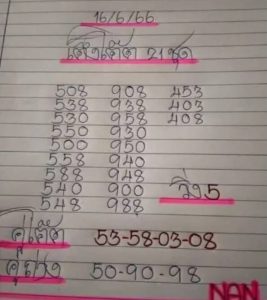 16/6/66
21 ชุด
508 908 453
538 938 403
530 958 408
550 930
500 950
558 940
588 948
540 900
548 988
5
คู่เด็ด 53-58-03-08
50-90-98
NAN